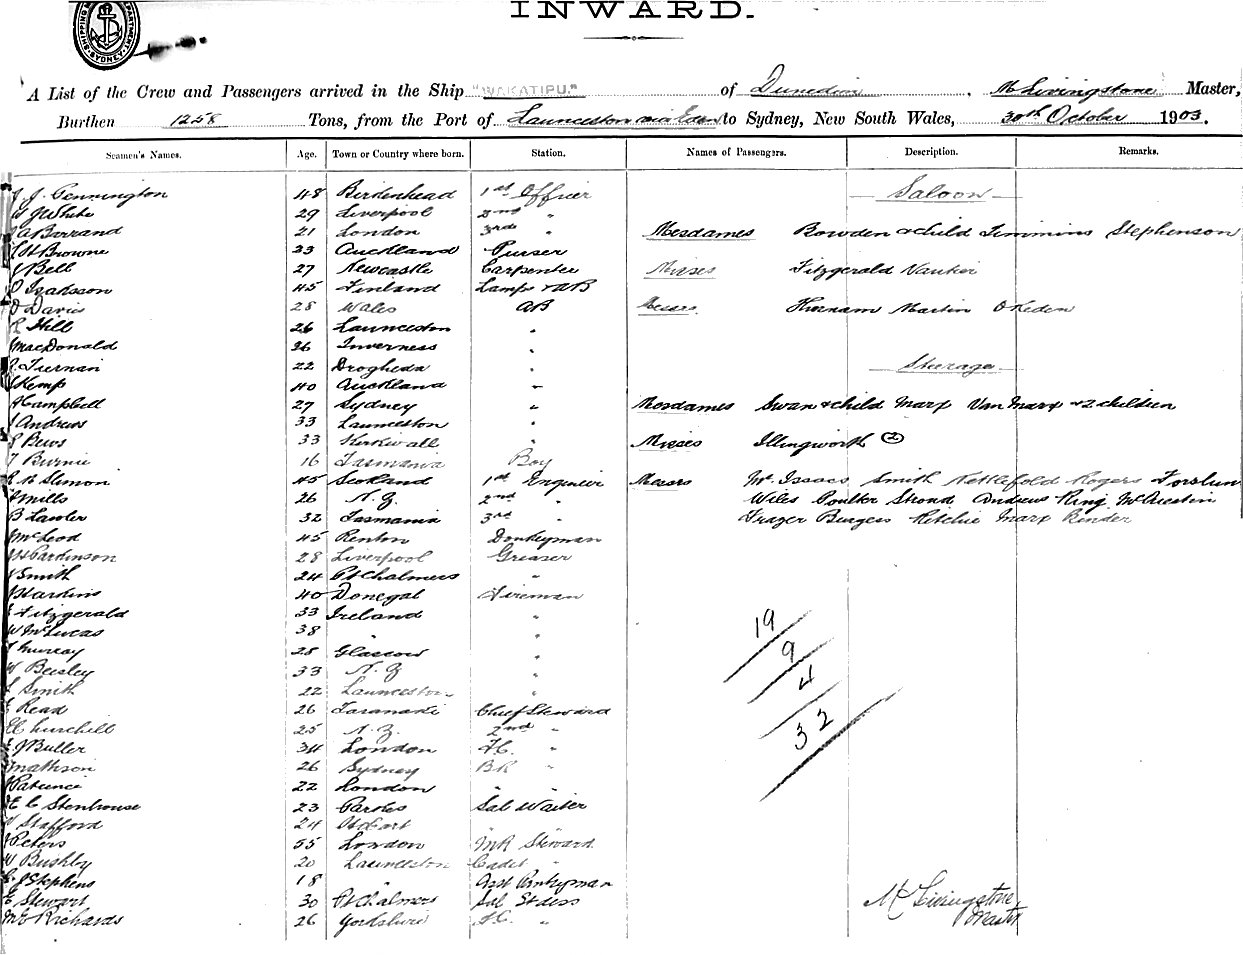 INWARD.
SHIPPING DEPARTMENT SYDNEY
A List of the Crew and Passengers arrived in the Ship "WAKATIPU." of Dunedin, M Livingstone Master,
Burthen 1258 Tons, from the Port of Launceston via Eden to Sydney, New South Wales, 30th October 1903.
Seamen's Names. Age. Town or Country where born. Station. Names of Passengers. Description. Remarks.
J. J. Pennington 48 Birkenhead 1st Officer Saloon
W J White 29 Liverpool 2nd "
A Barrand 21 London 3rd " Mesdames Bowden & child Timmins Stephenson
H Browne 23 Auckland Purser
J Bell 27 Newcastle Carpenter Misses Fitzgerald Vautier
O Isaksson 45 Finland Lamps & AB
D Davies 28 Wales AB Messrs Martin Okeden
R Hill 26 Launceston "
J MacDonald 36 Inverness "
J. Tiernan 22 Drogheda " Steerage
Kemp 40 Auckland "
Campbell 27 Sydney " Mesdames Swan & child Marx Van Marx & 2 children
J Andrews 33 Launceston "
Bews 33 Kirkwall " Misses Illingworth (2)
T Burnie 16 Tasmania Boy
R B Slimon 45 Scotland 1st Engineer Messrs McIsaacs Smith Nettlefold Rogers Forslun
Mills 26 N. Z. 2nd " Wiles Poulter Strond Andrews King McQuestin
B Lawler 32 Tasmania 3rd " Frazer Burgess Ritchie Marx Render
J McLeod 45 Renton Donkeyman
Parkinson 28 Liverpool Greaser
J Smith 24 Pt Chalmers "
J Harkins 40 Donegal Fireman
Fitzgerald 33 Ireland "
W McLucas 38 " "
Murray 28 Glasgow "
W Beesley 33 N. Z "
Smith 22 Launceston "
Read 26 Taranaki Chief Steward
E Churchill 25 N. Z. 2nd "
J Buller 34 London F.C. "
Mathison 26 Sydney BR "
Patience 22 London "
E C Stenhouse 23 Parkes Sal Waiter
Stafford 24 Hobart "
Peters 55 London MR Steward
W Bushby 20 Launceston Cadet "
J Stephens 18 " Asst Pantryman
E Stewart 30 Pt Chalmers Sal Stdess
Richards 26 Yorkshire F.C. "
19
9
4
32
M Livingstone
Master